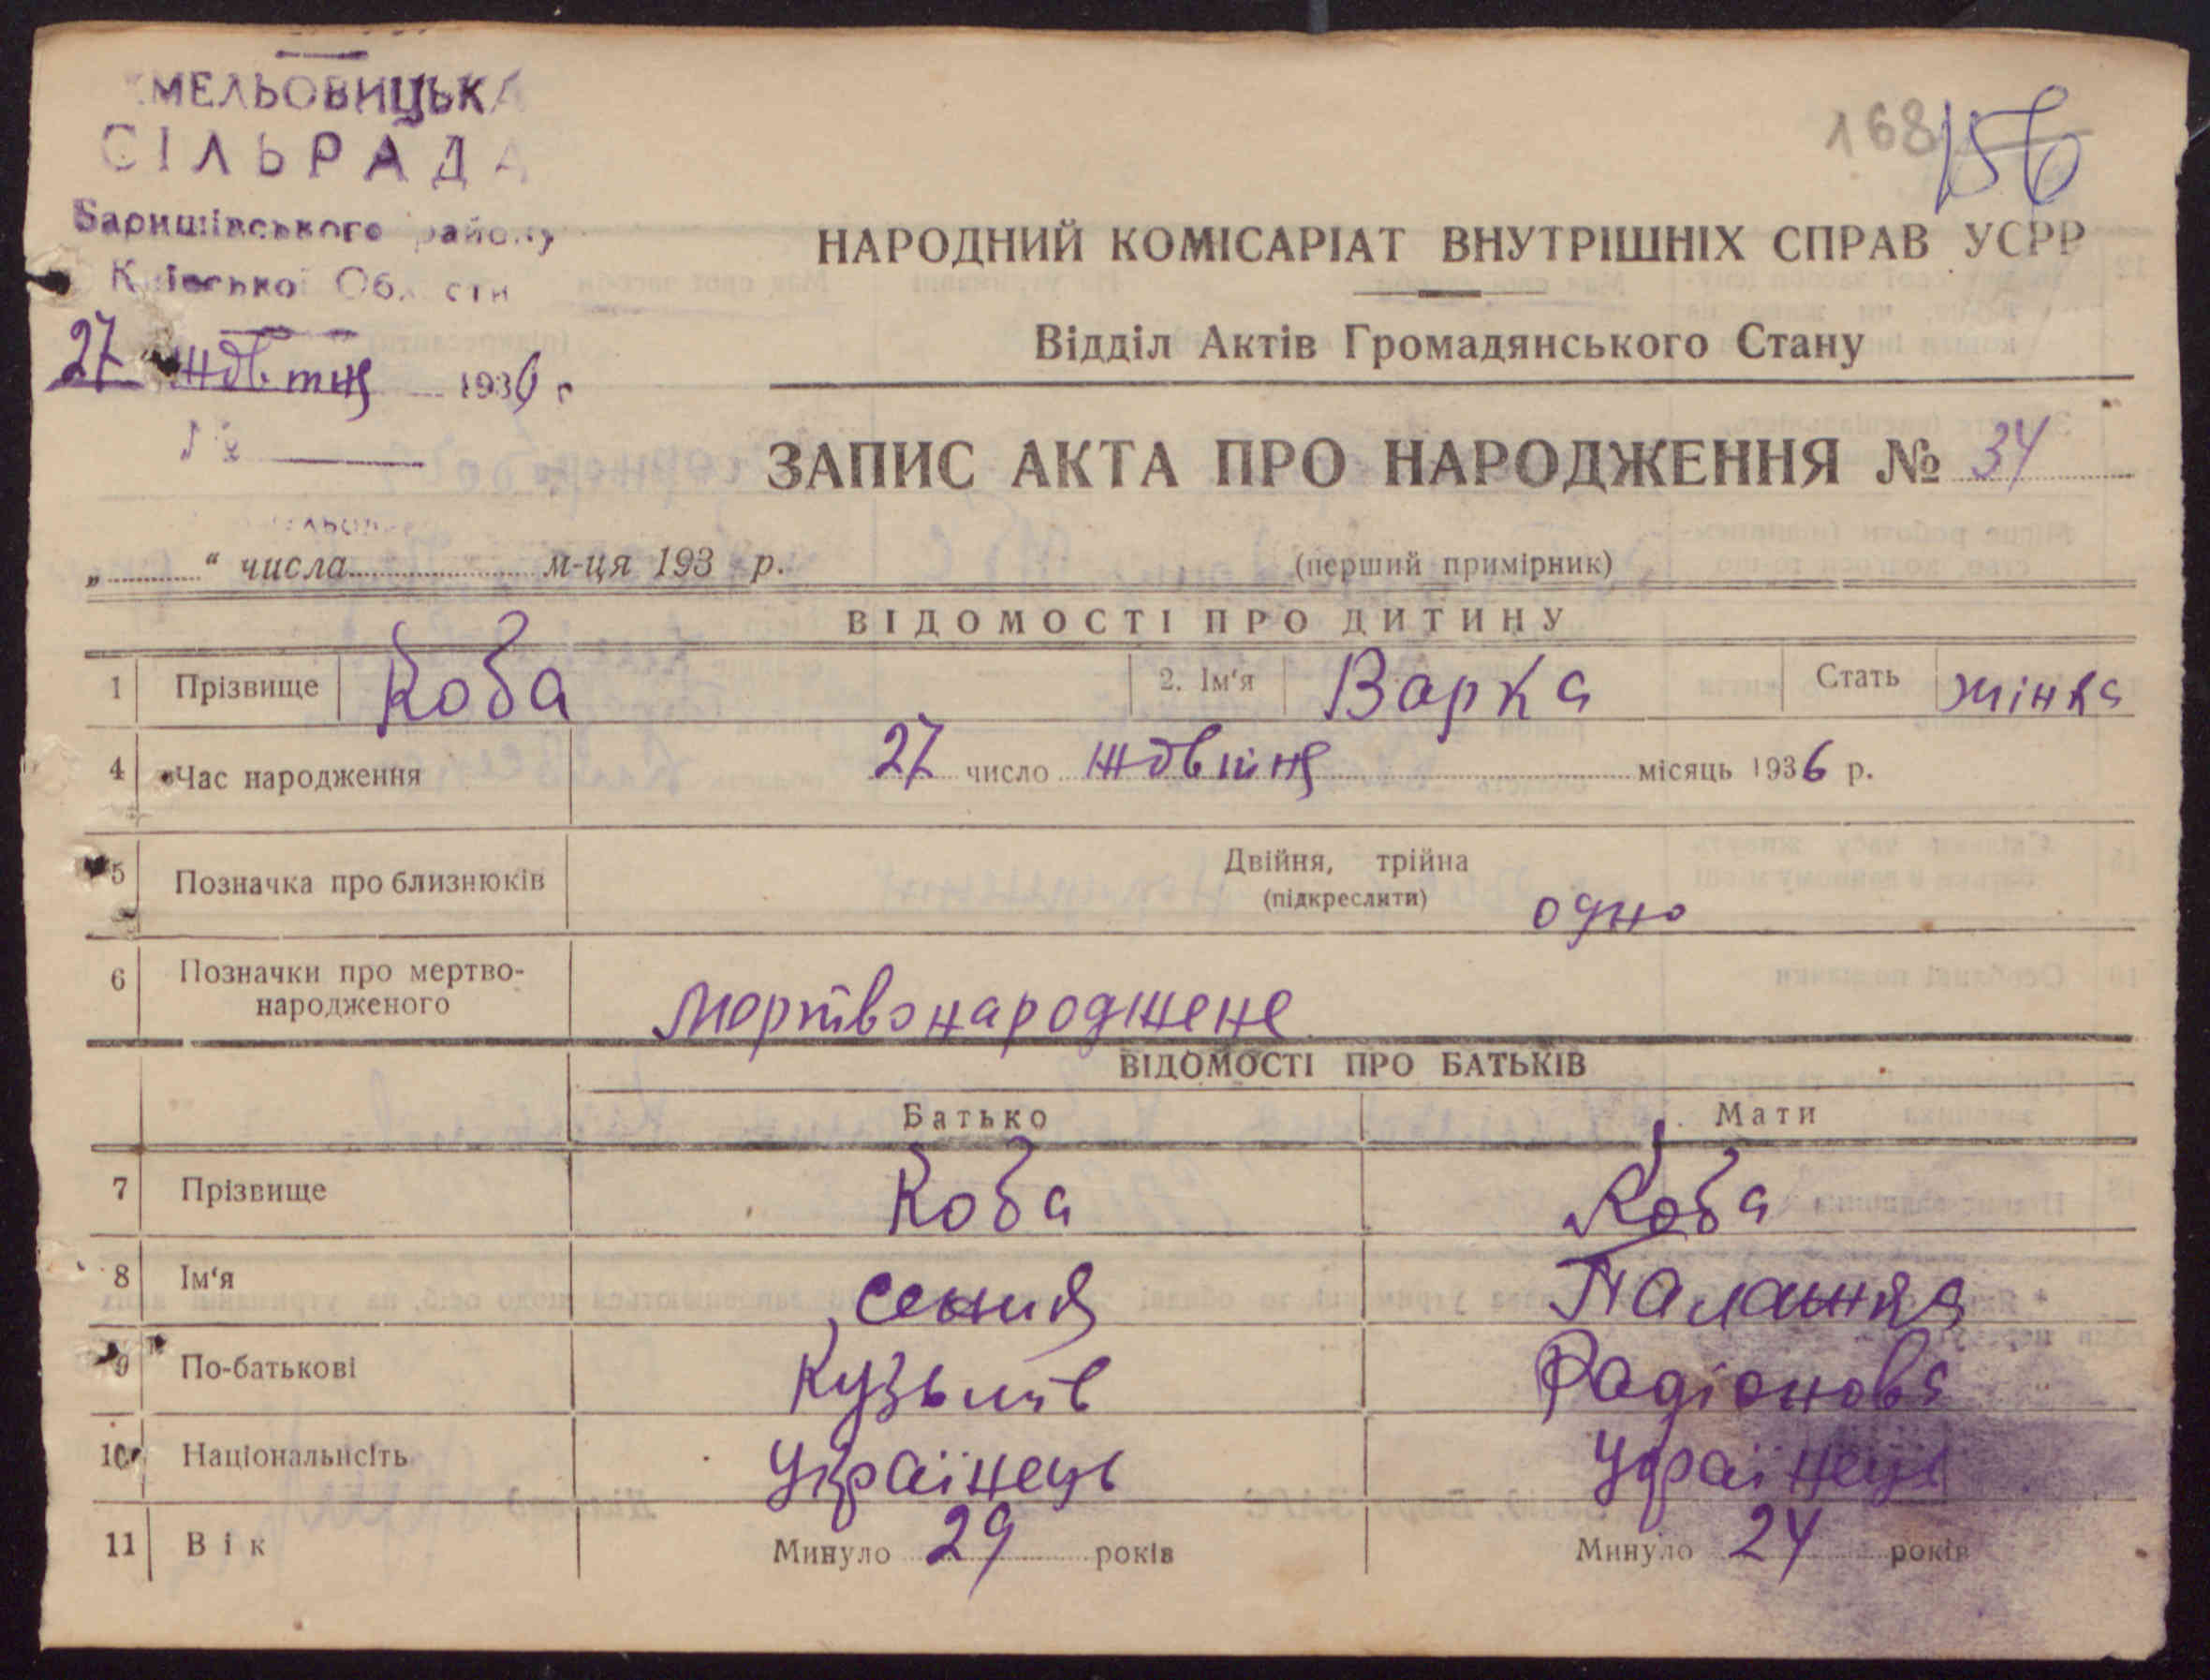 МЕЛЬОВИЦЬКА
СІЛЬРАДА
Баришівського району
Київської Області
27 жовтня 1936 г
№
168 156
НАРОДНИЙ КОМІСАРІАТ ВНУТРІШНІХ СПРАВ УСРР
Відділ Актів Громадянського Стану
ЗАПИС АКТА ПРО НАРОДЖЕННЯ № 34
„ “ числа м-ця 193 р.
(перший примірник)
ВІДОМОСТІ ПРО ДИТИНУ
1 Прізвище Коба 2. Ім'я Варка Стать жінка
4 Час народження 27 число жовтня місяць 1936 р.
5 Позначка про близнюків Двійня, трійна
(підкреслити) одно
6 Позначки про мертво-
народженого мортвонароджене
ВІДОМОСТІ ПРО БАТЬКІВ
Батько Мати
7 Прізвище Коба Коба
8 Ім'я Палажка
9 По-батькові Кузьмів Радіонова
10 Національнсіть Українець Українець
11 Вік Минуло 29 років Минуло 24 років